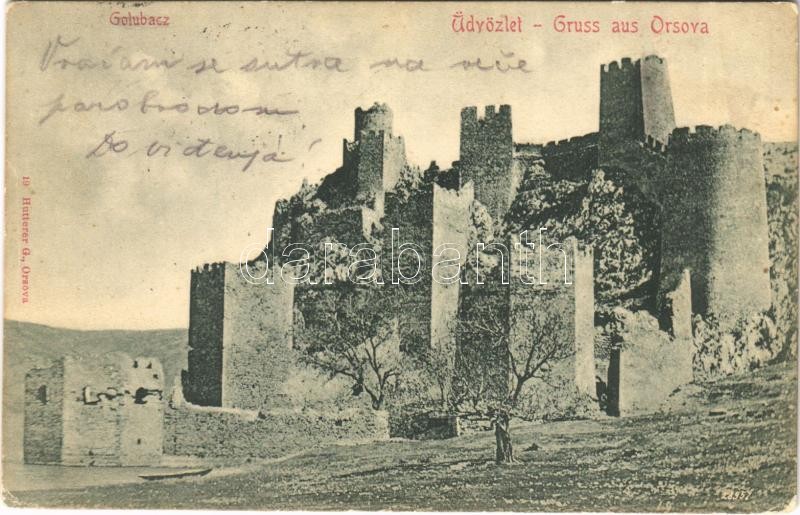 Golubacz
Üdvözlet - Gruss aus Orsova
Vraćam se sutra na veče
parobrodom
Do viđenja!
19 Hutterer G., Orsova
darabanth